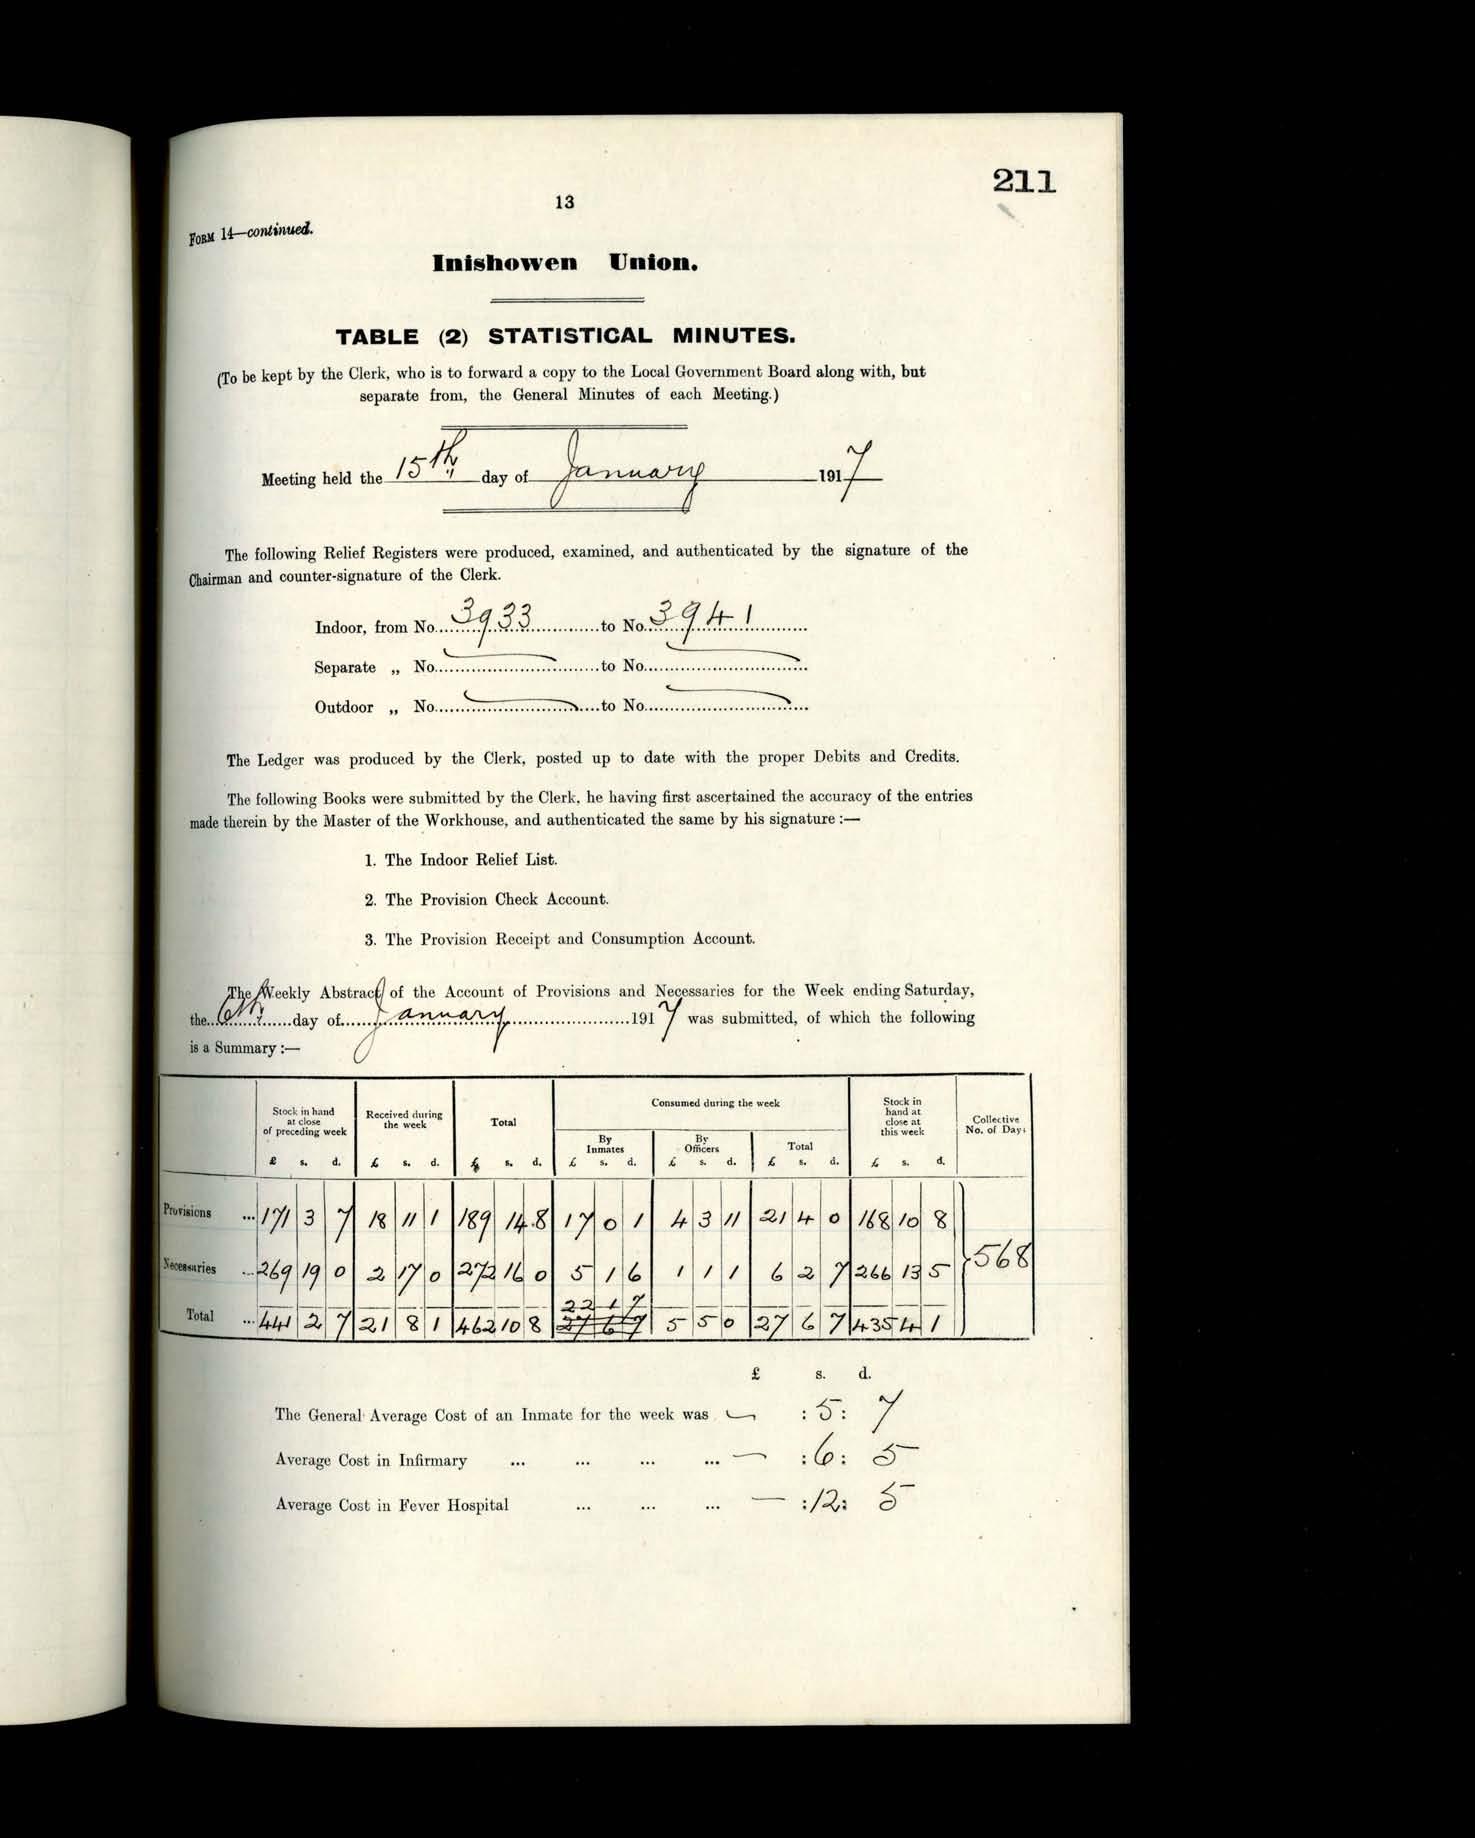 211
13
Form 14—continued.
Inishowen Union.
TABLE (2) STATISTICAL MINUTES.
(To be kept by the Clerk, who is to forward a copy to the Local Government Board along with, but
separate from, the General Minutes of each Meeting.)
Meeting held the 15th day of January 1917
The following Relief Registers were produced, examined, and authenticated by the signature of the
Chairman and counter-signature of the Clerk.
Indoor, from No. 3933 to No. 3941
Separate „ No. to No.
Outdoor „ No. to No.
The Ledger was produced by the Clerk, posted up to date with the proper Debits and Credits.
The following Books were submitted by the Clerk, he having first ascertained the accuracy of the entries
made therein by the Master of the Workhouse, and authenticated the same by his signature :—
1. The Indoor Relief List.
2. The Provision Check Account.
3. The Provision Receipt and Consumption Account.
The Weekly Abstract of the Account of Provisions and Necessaries for the Week ending Saturday,
the 6th day of January 1917 was submitted, of which the following
is a Summary :—
Stock in hand at close of preceding week Received during the week Total Consumed during the week Stock in hand at close at this week Collective No. of Days
By Inmates By Officers Total
£ s. d. £ s. d. £ s. d. £ s. d. £ s. d. £ s. d. £ s. d.
Provisions ... 171 3 7 18 11 1 189 14 8 17 0 1 4 3 11 21 4 0 168 10 8
Necessaries ... 269 19 0 2 17 0 272 16 0 5 1 6 1 1 1 6 2 7 266 13 5 568
22 1 7
Total ... 441 2 7 21 8 1 462 10 8 27 6 7 5 5 0 27 6 7 435 4 1
£ s. d.
The General Average Cost of an Inmate for the week was — : 5 : 7
Average Cost in Infirmary ... ... ... ... — : 6 : 5
Average Cost in Fever Hospital ... ... ... — : 12 : 5